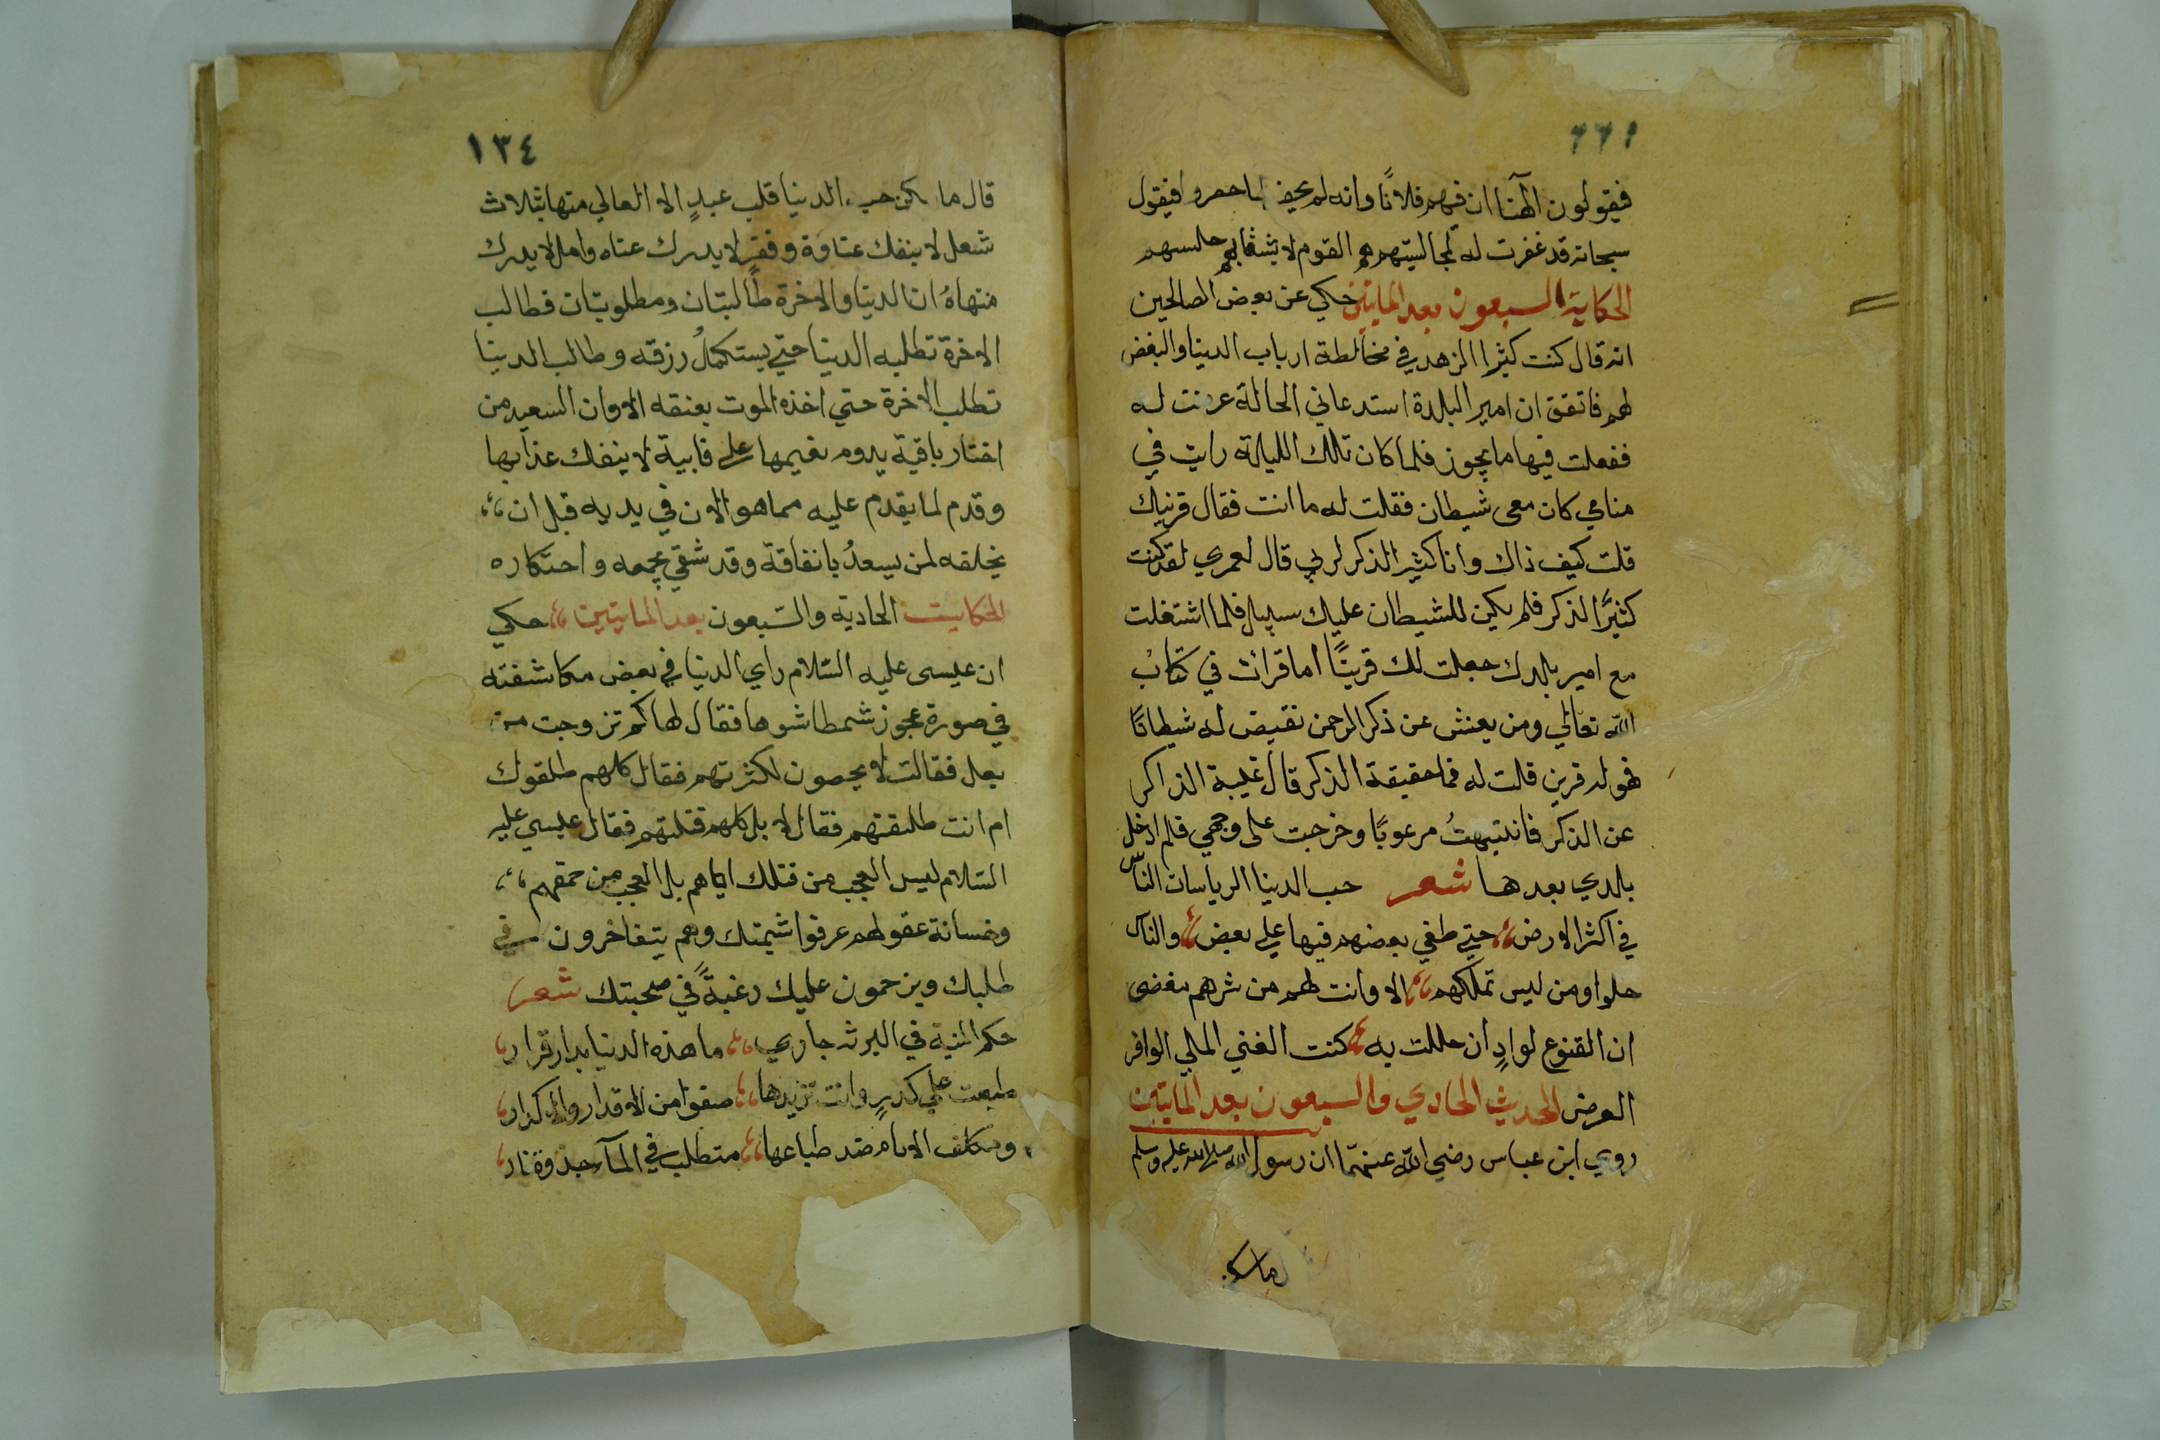 فيقولون الهنا ان فيهم فلانًا وانه لم يحضر فيقول
سبحانه قد غفرت له لمجالستهم هم القوم لا يشقا بهم جليسهم
الحكاية السبعون بعد المايتين حكي عن بعض الصالحين
انه قال كنت كثيرا الزهد في مخالطة ارباب الدنيا والبغض
لهم فاتفق ان امير البلدة استدعاني الحالة عرضت له
ففعلت فيها ما يجوز فلما كان تلك الليلة رايت في
منامي كان معي شيطان فقلت له ما انت فقال قرنيك
قلت كيف ذاك وانا كثير الذكر لربي قال لعمري لقد كنت
كثيرًا لذكر فلم يكين للشيطان عليك سبيل فلما اشتغلت
مع امير بلدك جعلت لك قرينًا اما قرات في كتاب
الله تعالي ومن يعش عن ذكر الرحمن نقيض له شيطانًا
فهو له قرين قلت له فما حقيقة الذكر قال غيبة الذاكر
عن الذكر فانتبهتُ مرعوبًا وخرجت على وجهي فلم ادخل
بلدي بعدها شعر حب الدنيا الرياسات الناس
في اكثر الارض حتي طغي بعضهم فيها علي بعض والناس
حلوا ومن ليس تملكهم الا وانت لهم من شرهم مغضى
ان القنوع لوادٍ ان حللت به كنت الغني المالي الوافر
العرض الحديث الحادي والسبعون بعد المايتين
روي ابن عباس رضي الله عنهما ان رسول الله صلى الله عليه وسلم
١٣٤
قال ما سكن حب الدنيا قلب عبدٍ الا التاطي منها بثلاث
شغل لا ينفك عناوة وفقرٍ لا يدرك عناه وامل لا يدرك
منتهاهُ ان الدنيا والاخرة طالبتان ومطلوبتان فطالب
الاخرة تطلبه الدنيا حتي يستكملُ رزقه وطالب الدنيا
تطلب الاخرة حتي اخذه الموت بعنقه الا وان السعيد من
اختار باقية يدوم نعيمها علي فانية لا ينفك عذابها
وقدم لما يقدم عليه مما هو الان في يديه قبل ان
يخلفه لمن يسعدُ بانفاقة وقد شقي بجمعه واحتكاره
الحكايت الحادية والسبعون بعد المايتين حكي
ان عيسى عليه السلام راي الدنيا في بعض مكاشفته
في صورة عجوز شمطا شوها فقال لها كم تزوجت من
بعل فقالت لا يحصون لكثرتهم فقال كلهم طلقوك
ام انت طلقتهم فقال لا بل كلهم قتلتهم فقال عيسي عليه
السلام ليس العجب من قتلك اياهم بل العجب من حمقهم
وخسانة عقولهم عرفوا شيمتك وهم يتفاخرون في
طلبك ويزحمون عليك رغبةً في صحبتك شعر
حكم المنية في البرثه جاري ما هذه الدنيا بدار قرار
طبعت علي كدرٍ وانت تزيدها صفوا من الاقدار والاكدار
ومكلف الايام ضد طباعها متطلب في المآ جذوة نار